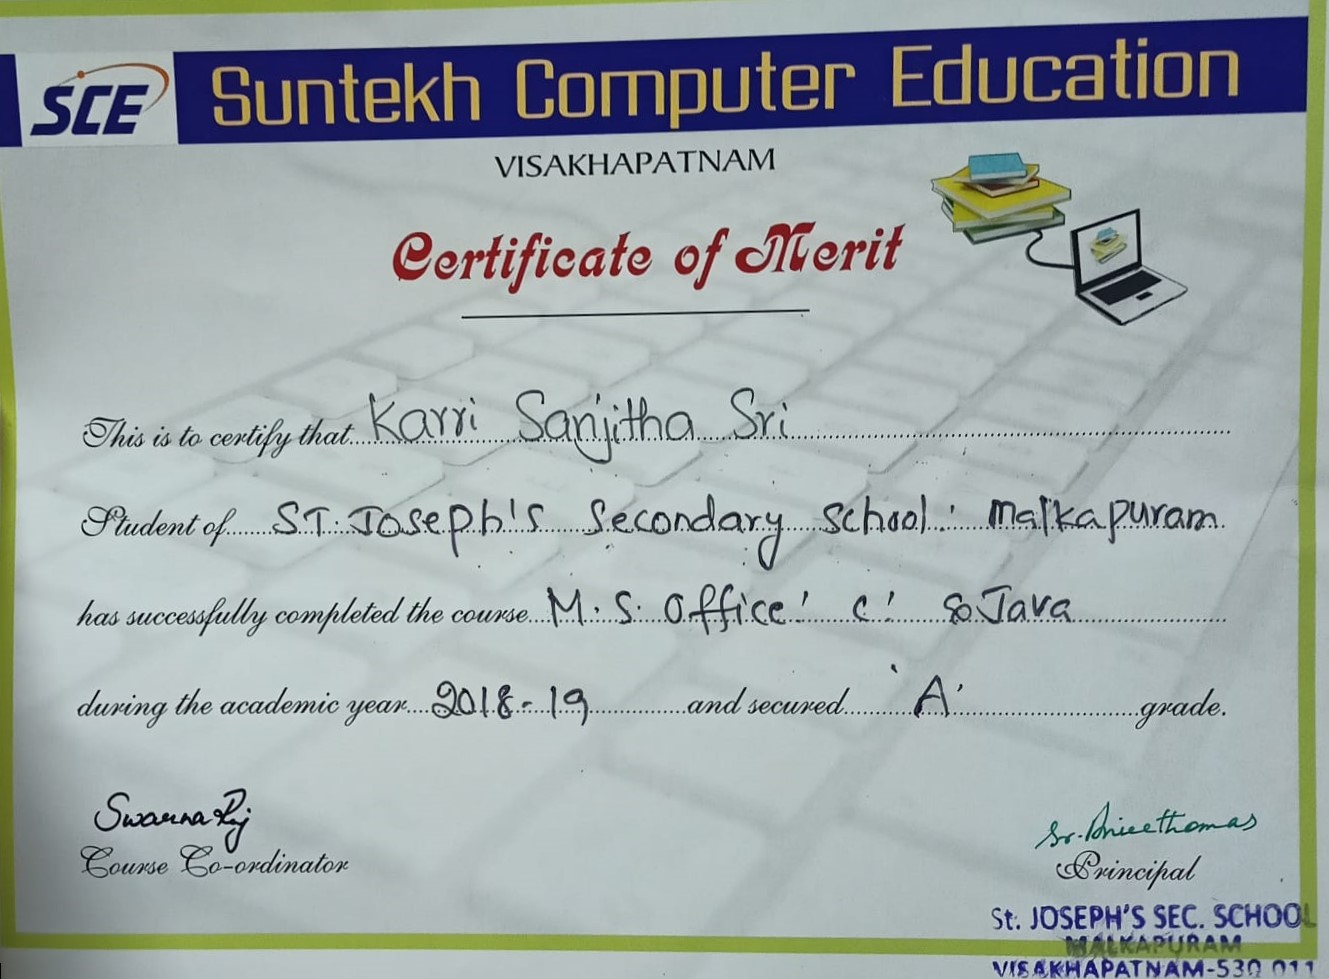 SCE Suntekh Computer Education
VISAKHAPATNAM
Certificate of Merit
This is to certify that Karri Sanjitha Sri
Student of ST. Joseph's Secondary school. Malkapuram
has successfully completed the course M.S. Office' C' & Java
during the academic year 2018-19 and secured 'A' grade.
Swarna Raj
Course Co-ordinator
Sr. Anieethomas
Principal
St. JOSEPH'S SEC. SCHOOL
MALKAPURAM
VISAKHAPATNAM-530 011